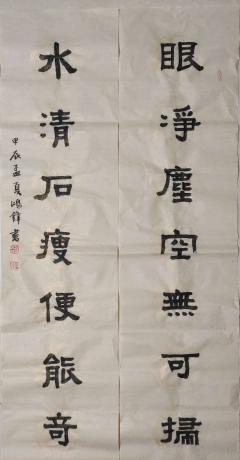 眼淨塵空無可掃
水清石瘦便能奇
甲辰孟夏鴻鋒書